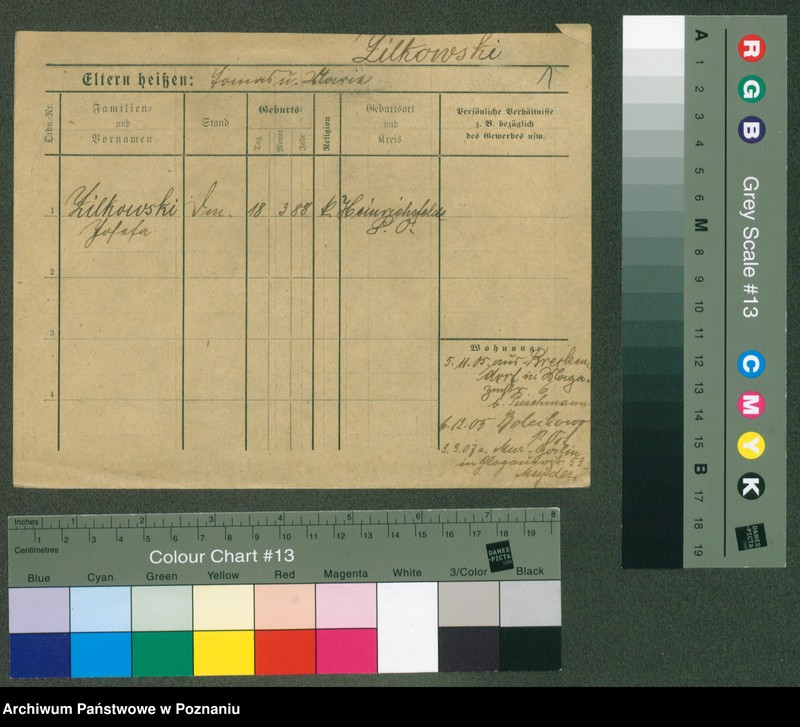 Zilkowski
Eltern heißen: Tomas u. Marie
Ordn.-Nr.
Familien-
und
Vornamen
Stand
Geburts-
Tag
Monat
Jahr
Religion
Geburtsort
und
Kreis
Persönliche Verhältnisse
z. B. bezüglich
des Gewerbes usw.
1
Zilkowski
Josefa
18 3 88 k. Heinrichsfelde
2
3
4
Wohnung:
5.11.05 aus
dorf in
6.12.05
3.3.07 n. Mur. Goslin
in
A
1
2
3
4
5
6
M
8
9
10
11
12
13
14
15
B
17
18
19
R
G
B
Grey Scale #13
C
M
Y
K
DANES
PICTA
.COM
Inches
1 2 3 4 5 6 7 8
1 2 3 4 5 6 7 8 9 10 11 12 13 14 15 16 17 18 19
Centimetres
Colour Chart #13
DANES
PICTA
.COM
Blue Cyan Green Yellow Red Magenta White 3/Color Black
Archiwum Państwowe w Poznaniu